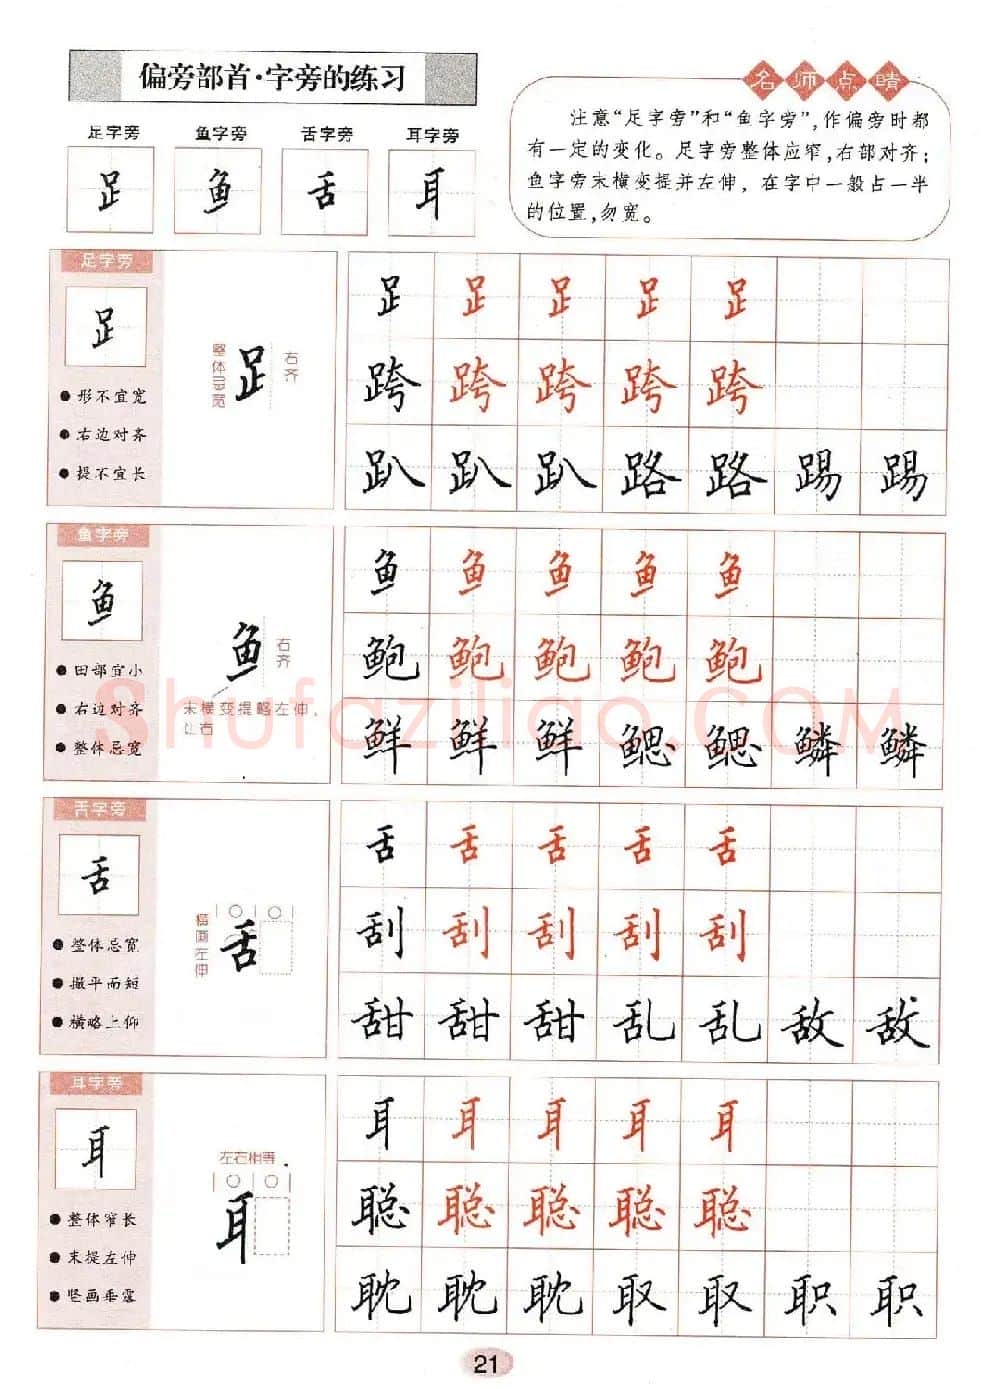 偏旁部首·字旁的练习
名师点睛
足字旁 鱼字旁 舌字旁 耳字旁
足 鱼 舌 耳
注意“足字旁”和“鱼字旁”,作偏旁时都
有一定的变化。足字旁整体应窄,右部对齐;
鱼字旁末横变提并左伸,在字中一般占一半
的位置,勿宽。
足字旁
足
形不宜宽
右边对齐
提不宜长
整体忌宽
足
右齐
足 足 足 足 足
跨 跨 跨 跨 跨
趴 趴 趴 路 路 踢 踢
鱼字旁
鱼
田部宜小
右边对齐
整体忌宽
鱼
右齐
末横变提略左伸,
让右
鱼 鱼 鱼 鱼 鱼
鲍 鲍 鲍 鲍 鲍
鲜 鲜 鲜 鳃 鳃 鳞 鳞
Shufaziliao.COM
舌字旁
舌
整体忌宽
撇平而短
横略上仰
横画左伸
舌
舌 舌 舌 舌 舌
刮 刮 刮 刮 刮
甜 甜 甜 乱 乱 敌 敌
耳字旁
耳
整体窄长
末提左伸
竖画垂露
左右相等
耳
耳 耳 耳 耳 耳
聪 聪 聪 聪 聪
耽 耽 耽 取 取 职 职
21